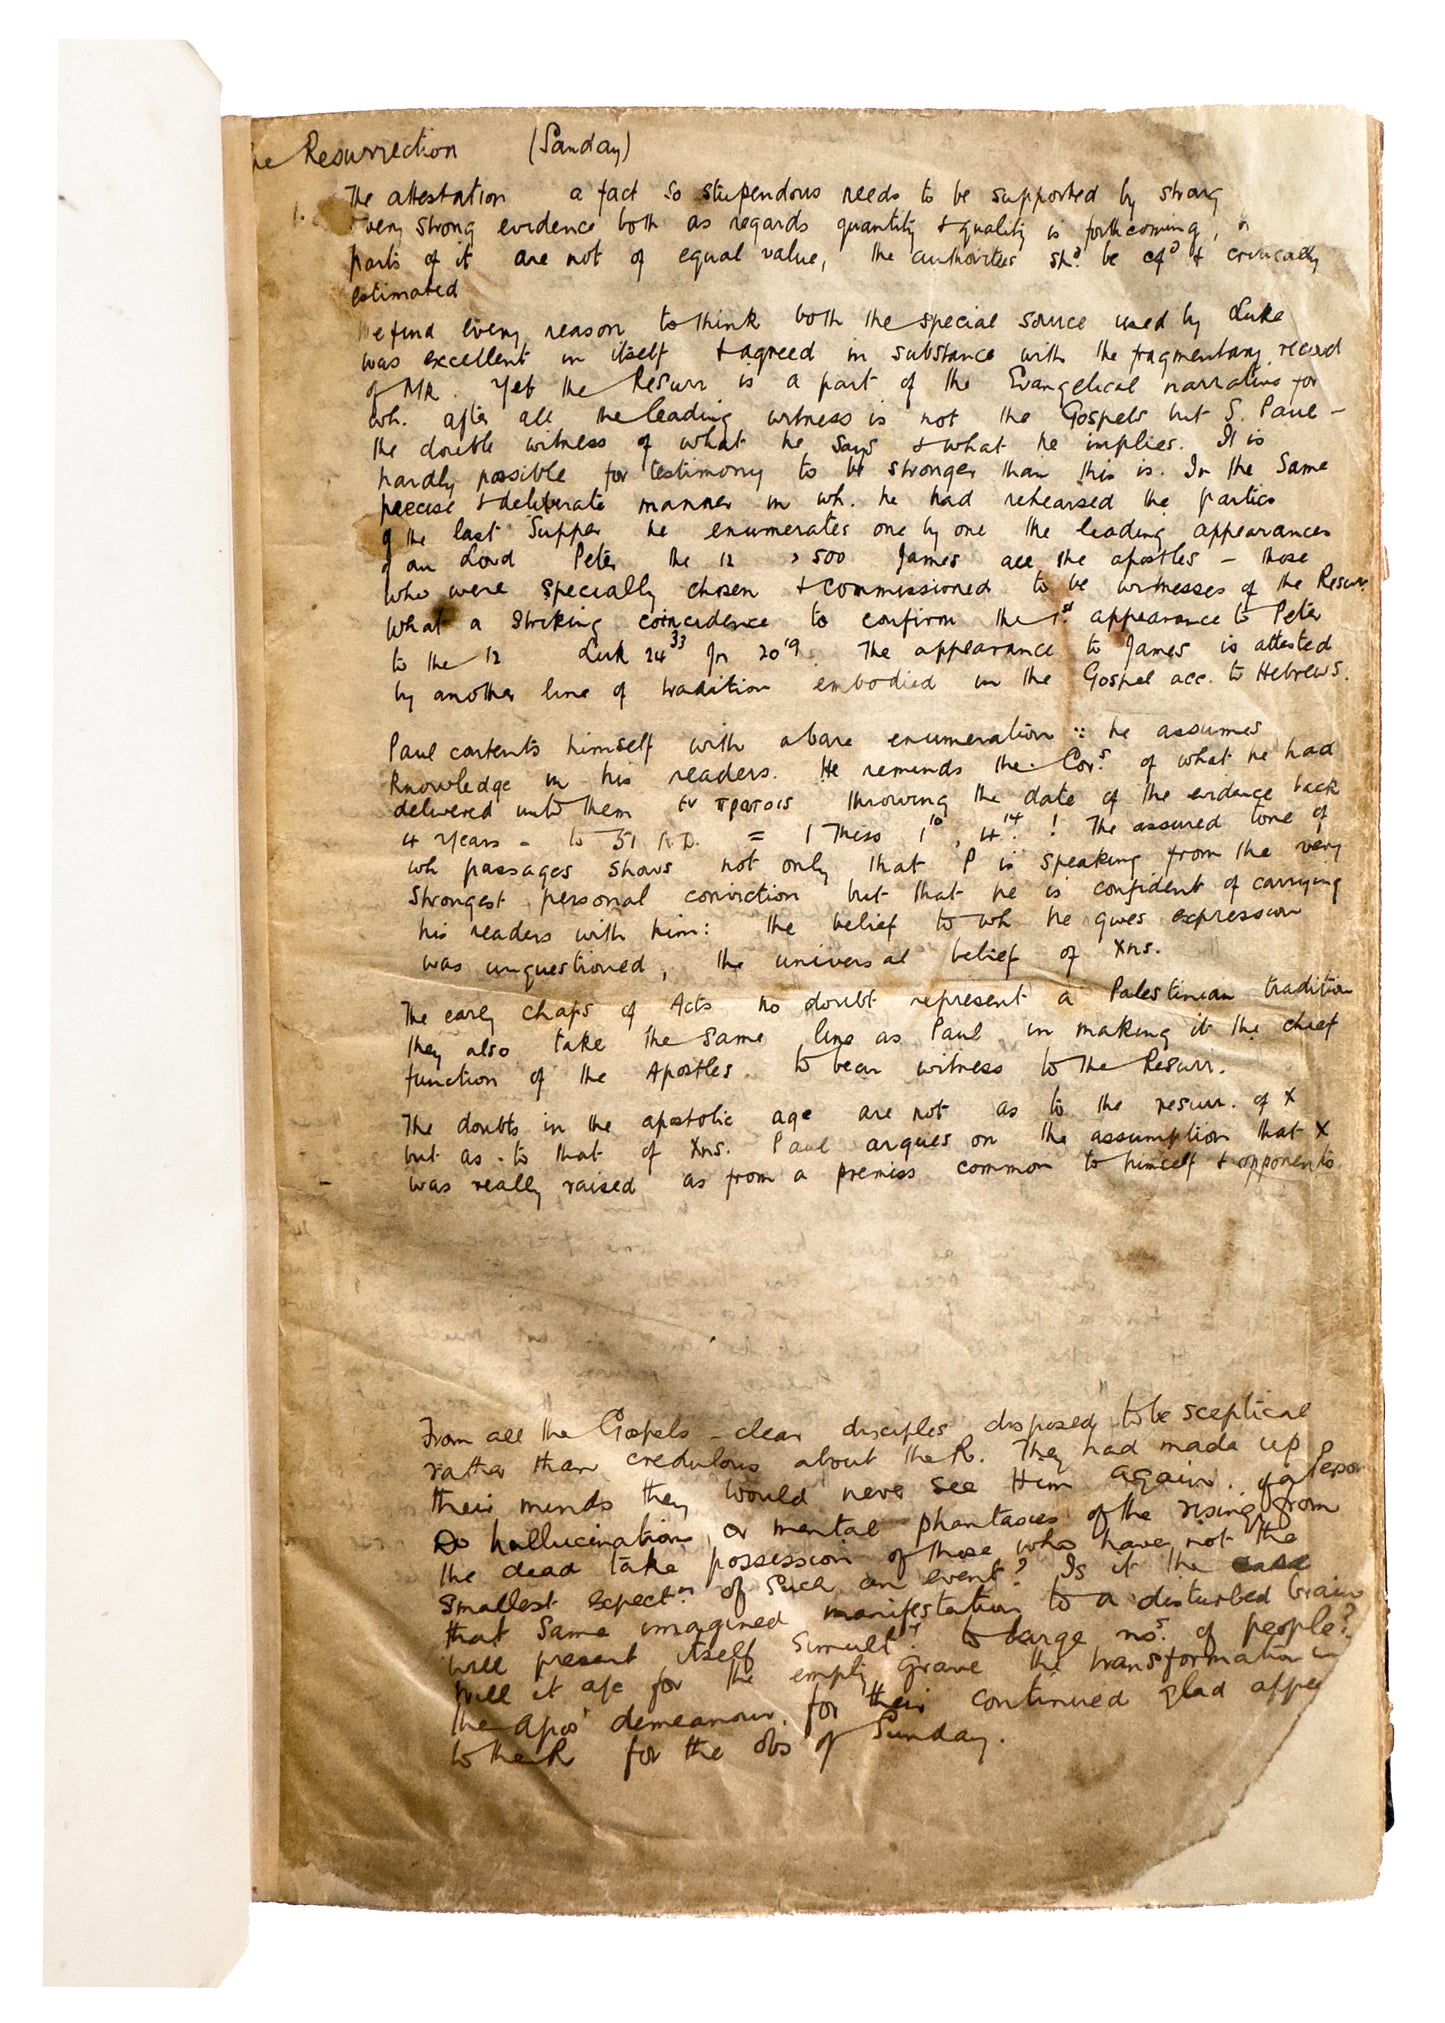 he Resurrection (Sanday)
1. The attestation a fact so stupendous needs to be supported by strong
& very strong evidence both as regards quantity & quality is forthcoming,
parts of it are not of equal value, the authorities shd. be cfd & critically
estimated
We find every reason to think both the special source used by Luke
was excellent in itself & agreed in substance with the fragmentary record
of MK. Yet the Resurr is a part of the Evangelical narrative for
wh. after all the leading witness is not the Gospels but S. Paul –
the double witness of what he says & what he implies. It is
hardly possible for testimony to be stronger than this is. In the same
precise & deliberate manner in wh. he had rehearsed the partics
of the last Supper he enumerates one by one the leading appearances
of our Lord Peter the 12 > 500 James all the apostles – those
who were specially chosen & commissioned to be witnesses of the Resurr.
What a striking coincidence to confirm the 1st. appearance to Peter
to the 12 Luk 24 33 Jn 20 19. The appearance to James is attested
by another line of tradition embodied in the Gospel acc. to Hebrews.
Paul contents himself with a bare enumeration ∵ he assumes
knowledge in his readers. He reminds the Cors. of what he had
delivered unto them εν πρωτοις throwing the date of the evidence back
4 years – to 51 A.D. = 1 Thess 1 10, 4 14. ! The assured tone of
wh passages shows not only that P is speaking from the very
strongest personal conviction but that he is confident of carrying
his readers with him: the belief to wh he gives expression
was unquestioned, the universal belief of Xns.
The early chaps of Acts no doubt represent a Palestinian tradition
they also take the same line as Paul in making it the chief
function of the Apostles. to bear witness to the Resurr.
The doubts in the apostolic age are not as to the resurr. of X
but as to that of Xns. Paul argues on the assumption that X
was really raised as from a premiss common to himself & opponents
From all the Gospels – clear disciples disposed to be sceptical
rather than credulous about the R. They had made up
their minds they would never see Him again. of a Person
Do hallucinations or mental phantasies of the rising from
the dead take possession of those who have not the
smallest expectn. of such an event? Is it the case
that same imagined manifestation to a disturbed brain
will present itself simulty. to large nos. of people?
Will it a/c for the empty grave the transformation in
the apos' demeanour. for their continued glad appe
to the R for the obs of Sunday.